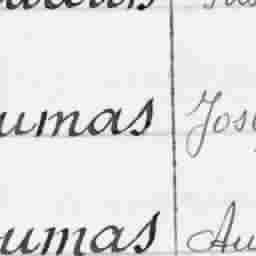 umas Jos
umas Au